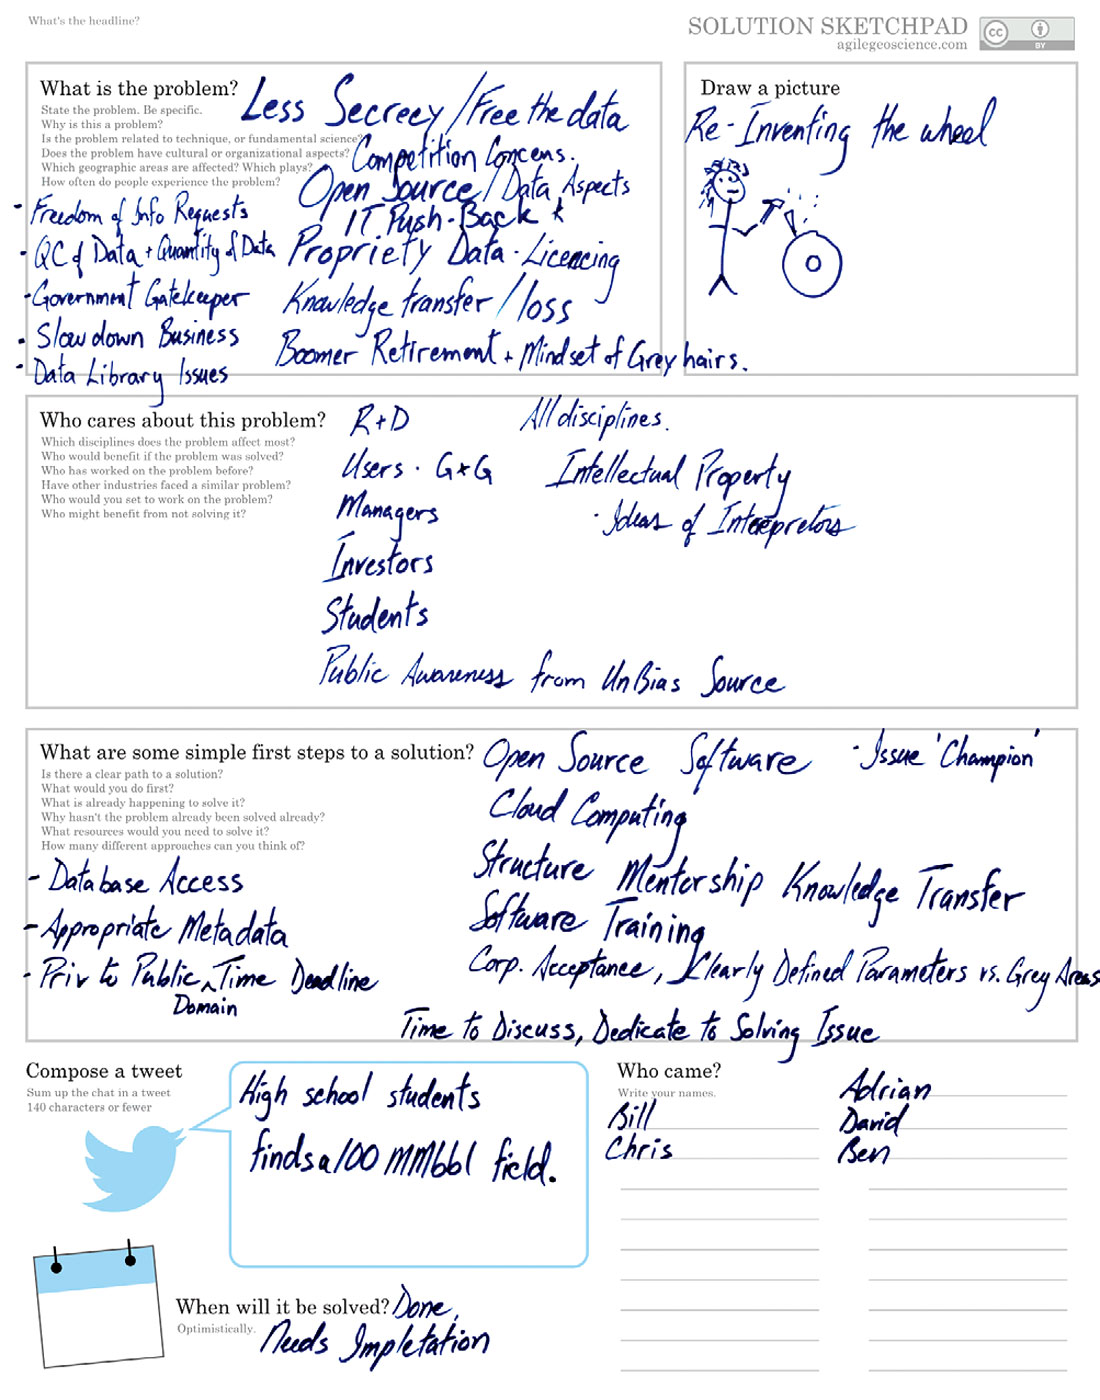 What's the headline?
SOLUTION SKETCHPAD
agilegeoscience.com
cc BY
What is the problem?
State the problem. Be specific.
Why is this a problem?
Is the problem related to technique, or fundamental science?
Does the problem have cultural or organizational aspects?
Which geographic areas are affected? Which plays?
How often do people experience the problem?
Less Secrecy / Free the data
Competition Concens.
Open Source / Data Aspects
IT Push-Back *
Propriety Data - Licencing
Knowledge transfer / loss
Boomer Retirement + Mindset of Grey hairs.
- Freedom of Info Requests
- QC of Data + Quantity of Data
- Government Gatekeeper
- Slow down Business
- Data Library Issues
Draw a picture
Re-Inventing the wheel
Who cares about this problem?
Which disciplines does the problem affect most?
Who would benefit if the problem was solved?
Who has worked on the problem before?
Have other industries faced a similar problem?
Who would you set to work on the problem?
Who might benefit from not solving it?
R+D
Users - G+G
Managers
Investors
Students
Public Awareness from UnBias Source
All disciplines.
Intellectual Property
- Ideas of Interpretors
What are some simple first steps to a solution?
Is there a clear path to a solution?
What would you do first?
What is already happening to solve it?
Why hasn't the problem already been solved already?
What resources would you need to solve it?
How many different approaches can you think of?
Open Source Software - Issue 'Champion'
Cloud Computing
Structure Mentorship Knowledge Transfer
Software Training
Corp. Acceptance, Clearly Defined Parameters vs. Grey Areas
Time to Discuss, Dedicate to Solving Issue
- Database Access
- Appropriate Metadata
- Priv to Public ^ Time Deadline
Domain
Compose a tweet
Sum up the chat in a tweet
140 characters or fewer
High school students
finds a 100 MMbbl field.
Who came?
Write your names.
Bill
Chris
Adrian
David
Ben
When will it be solved?
Optimistically.
Done,
Needs Impletation